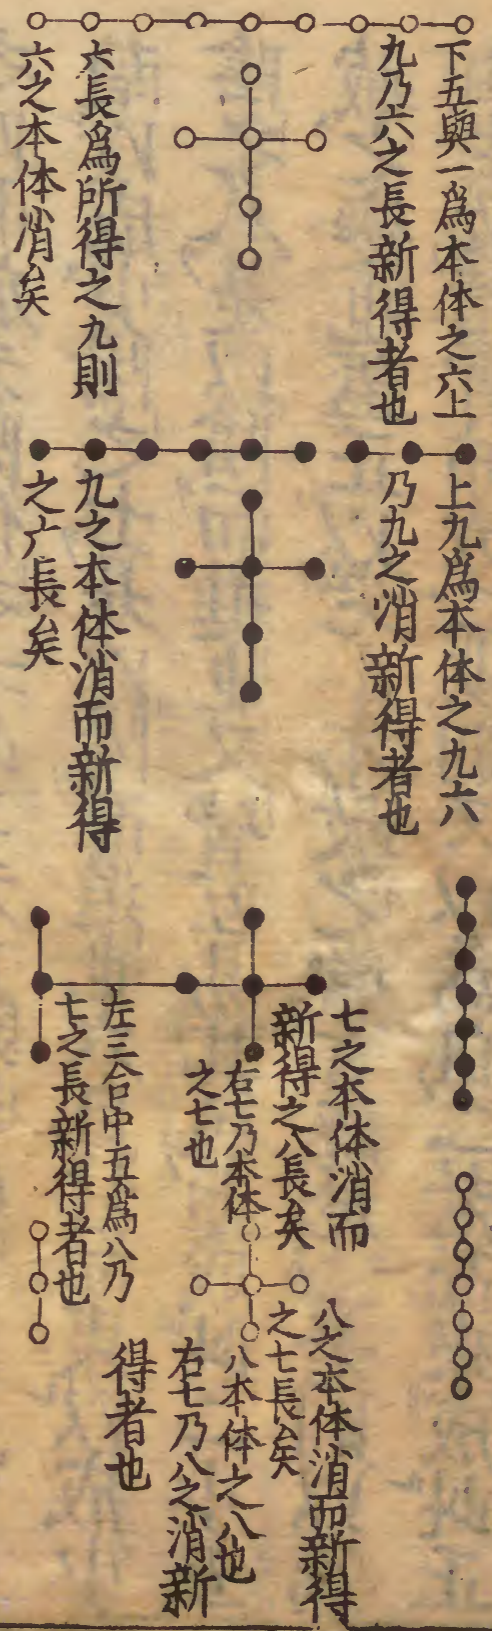 下五與一爲本体之六上
九乃六之長新得者也
六長爲所得之九則
六之本体消矣
上九爲本体之九六
乃九之消新得者也
九之本体消而新得
之六長矣
七之本体消而
新得之八長矣
右七乃本体
之七也
左三合中五爲八乃
七之長新得者也
八之本体消而新得
之七長矣
八本体之八也
右七乃八之消新
得者也